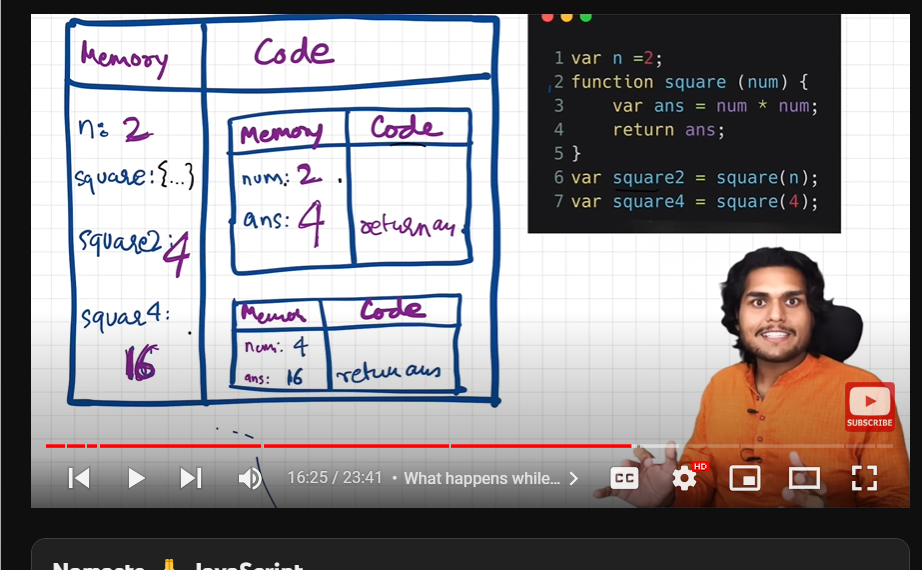 Memory
Code
n: 2
square:{...}
square2: 4
squar4:
16
Memory
Code
num: 2
ans: 4
return an
Memor
Code
num: 4
ans: 16
return ans
1 var n =2;
2 function square (num) {
3 var ans = num * num;
4 return ans;
5 }
6 var square2 = square(n);
7 var square4 = square(4);
SUBSCRIBE
16:25 / 23:41 • What happens while...
CC
HD
Namaste 🙏 JavaScript